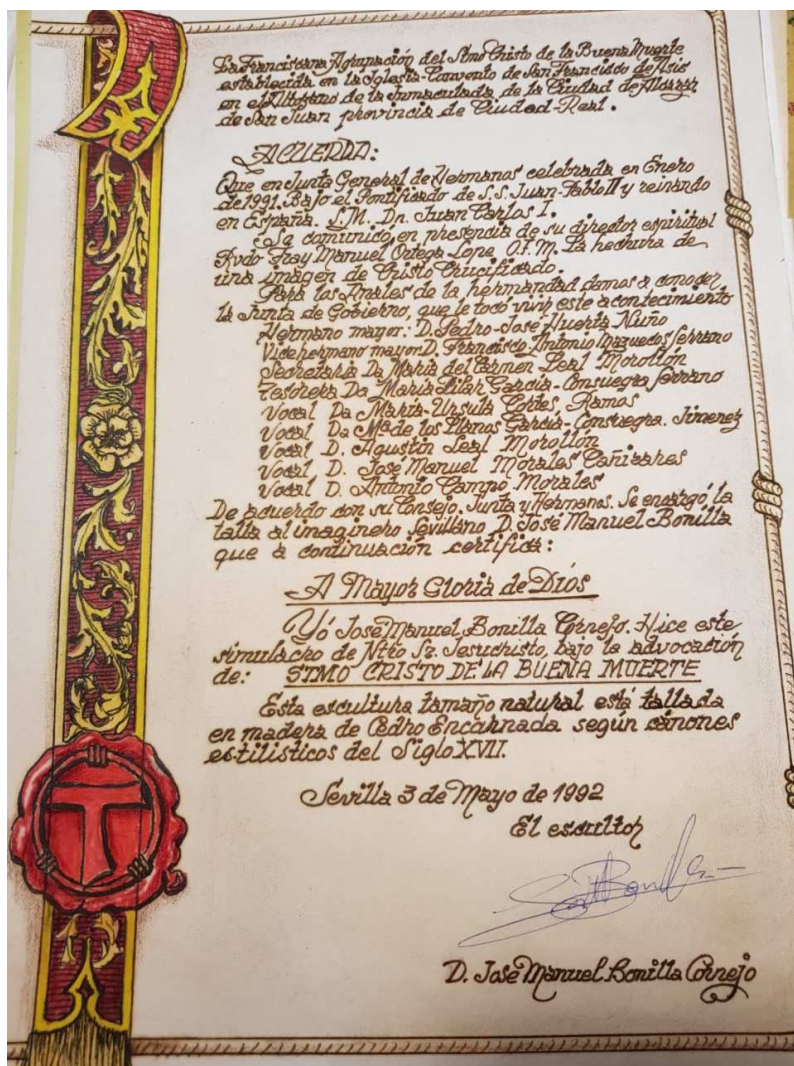 La Franciscana Agrupación del Stmo Christo de la Buena Muerte
establecida en la Iglesia-Convento de San Francisco de Asis
en el Altozano de la Inmaculada de la Ciudad de Alcázar
de San Juan provincia de Ciudad-Real.
ACUERDA:
Que en Junta General de Hermanos celebrada en Enero
de 1991. Bajo el Pontificado de S.S. Juan-Pablo II y reinando
en España. S.M. Dn. Juan Carlos I.
Se comunicó en presencia de su director espiritual
Rvdo Fray Manuel Ortega Lope O.F.M. La hechura de
una imagen de Christo Crucificado.
Para los Anales de la hermandad damos a conocer
la Junta de Gobierno, que le tocó vivir este acontecimiento
Hermano mayor: D. Pedro-Jose Huerta Nuño
Vicehermano mayor D. Francisco Antonio Mazuecos Serrano
Secretaria Da Maria del Carmen Leal Morollón
Tesorera Da Maria Pilar Garcia-Consuegra Serrano
Vocal Da Maria-Ursula Cortes Ramos
Vocal Da Mª de los Llanos Garcia-Consuegra. Jimenez
Vocal D. Agustin Leal Morollón
Vocal D. Jose Manuel Morales Cañizares
Vocal D. Antonio Campo Morales
De acuerdo con su Consejo. Junta y Hermanos. Se encargó la
talla al imaginero Sevillano D. José Manuel Bonilla
que a continuación certifica:
A Mayor Gloria de Diós
Yó José Manuel Bonilla Cornejo. Hice este
simulacro de Ntro Sr. Jesucristo, bajo la advocación
de: STMO CRISTO DE LA BUENA MUERTE
Esta escultura tamaño natural está tallada
en madera de Cedro Encarnada según cánones
estilisticos del Siglo XVII.
Sevilla 3 de Mayo de 1992
El escultor
D. José Manuel Bonilla Cornejo